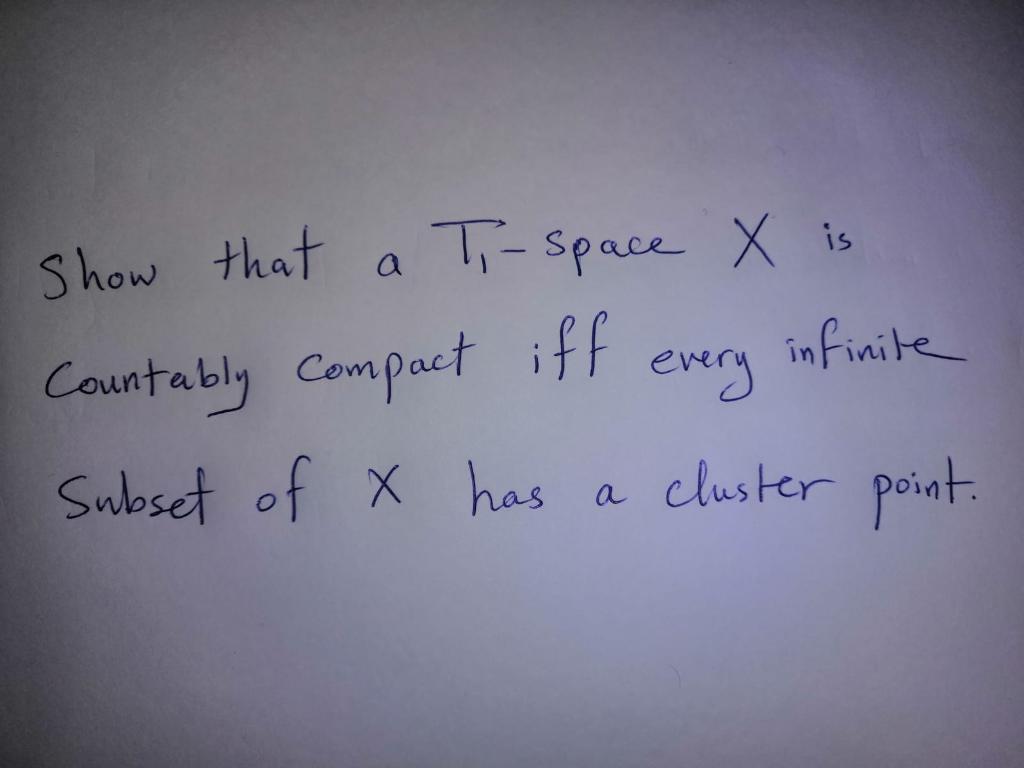 Show that a T₁-space X is
Countably Compact iff every infinite
Subset of X has a cluster point.